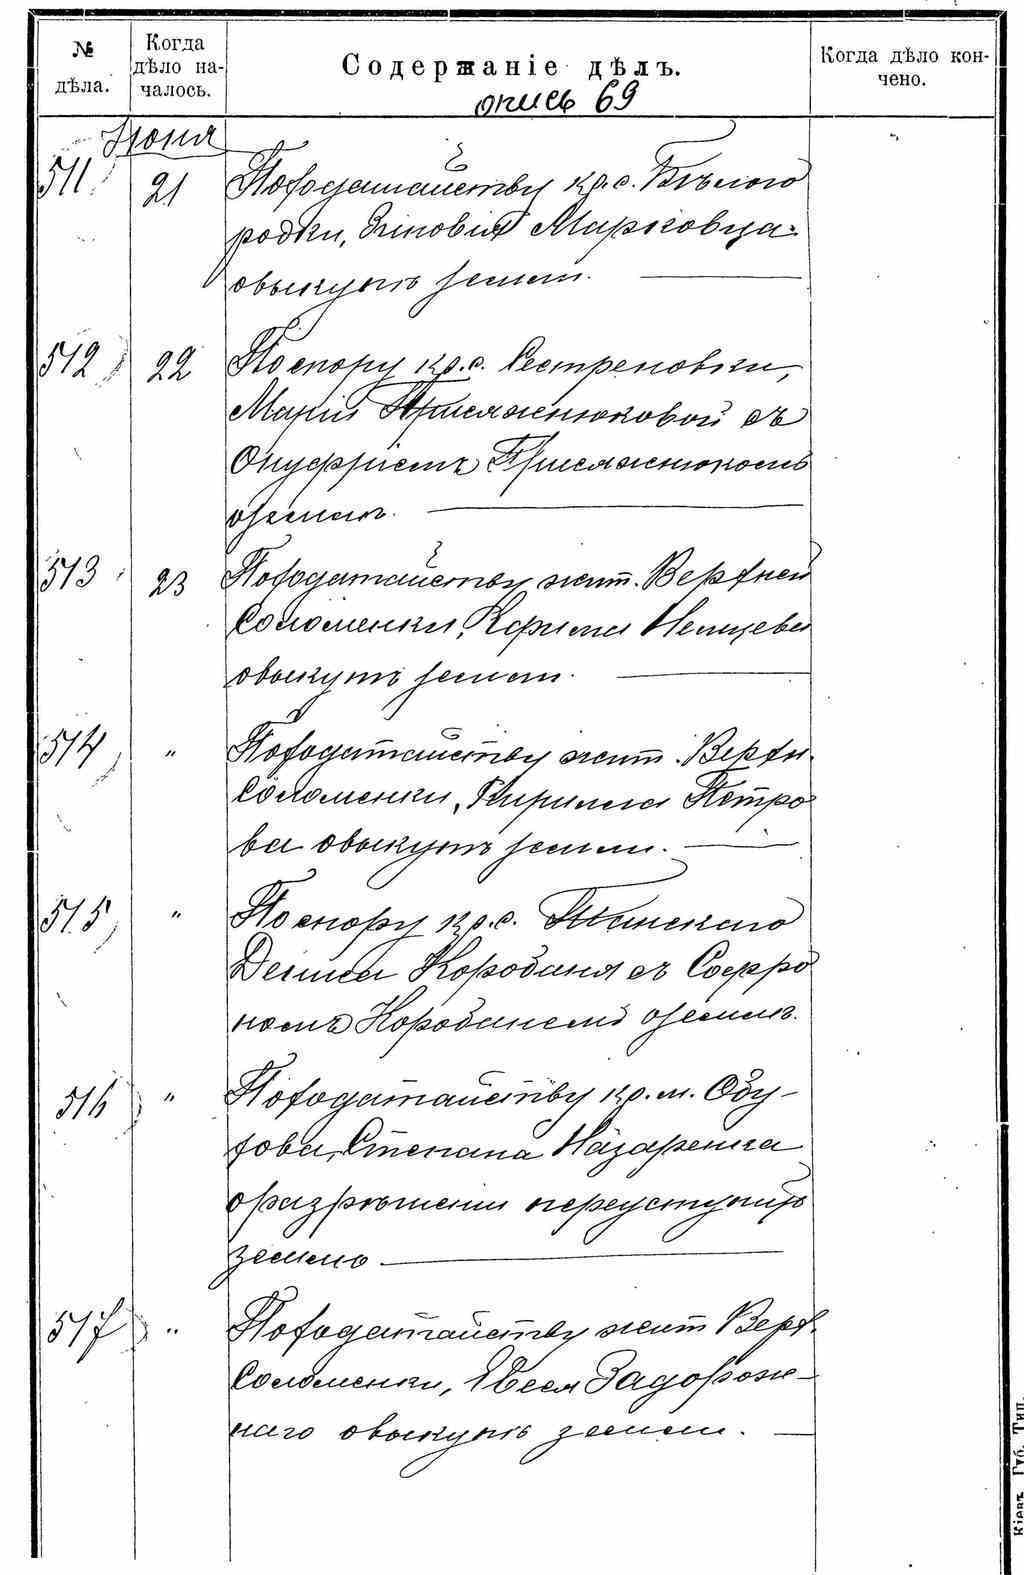 № дѣла.
Когда дѣло на-
чалось.
Содержаніе дѣлъ.
Когда дѣло кон-
чено.
опись 69
Іюня
511 21 По ходатайству кр. с. Бѣлого
родки, Зиновія Марковца
о выкупѣ земли.
512 22 По спору кр. с. Сестреновки,
Маріи Присяжнюковой съ
Онуфріемъ Присяжнюкомъ
о землѣ.
513 23 По ходатайству жит. Верхней
Соломенки, Нелицева
о выкупѣ земли.
514 " По ходатайству жит. Верхн.
Соломенки, Кирилла Петро
ва о выкупѣ земли.
515 " По спору кр. с.
Дениса Коробаня съ Софро
номъ Коробанемъ о землѣ.
516 " По ходатайству кр. м. Обу-
хова, Степана Назаренка
о разрѣшеніи переуступить
землю
517 " По ходатайству жит Верх.
Соломенки, Задорож-
наго о выкупѣ земли.
Кіевъ. Губ. Тип.